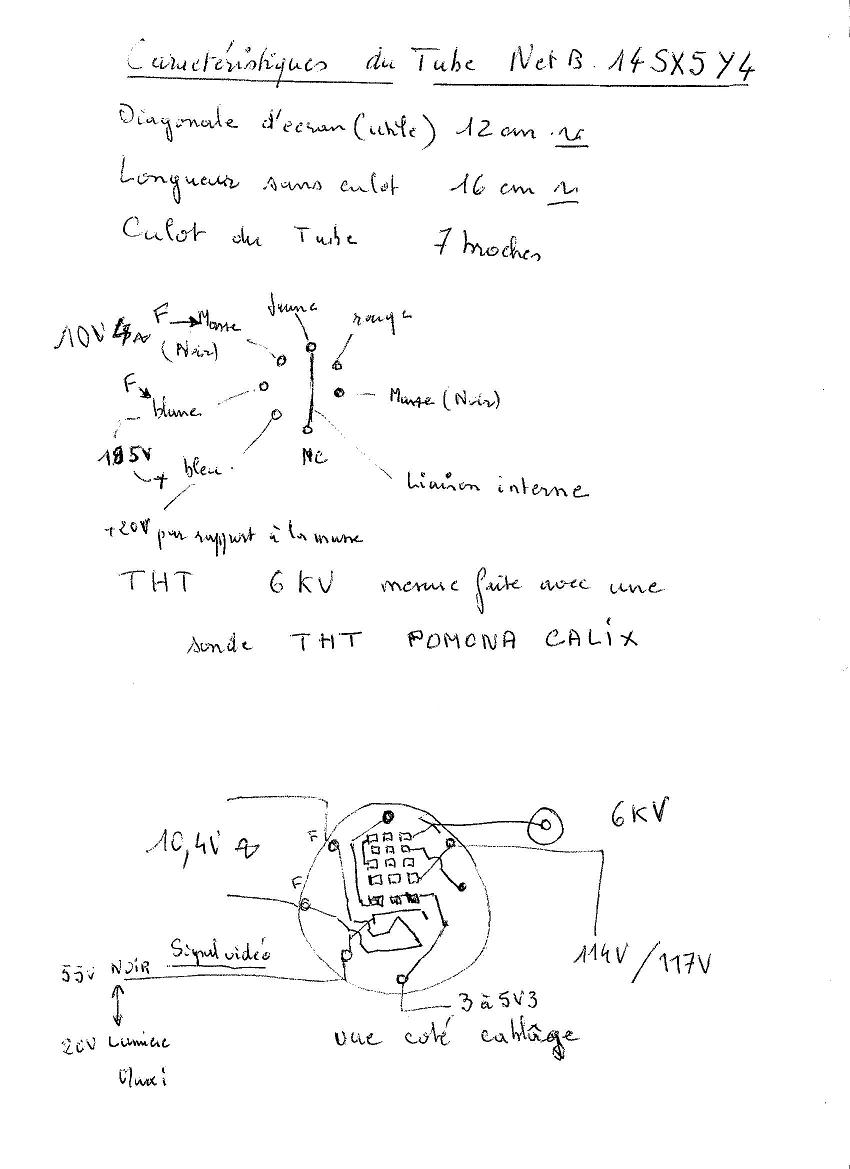 Caractéristiques du Tube N et B. 14SX5Y4
Diagonale d'écran (utile) 12 cm
Longueur sans culot 16 cm
Culot du Tube 7 broches
jaune
F → Masse
rouge
10V4
(Noir)
F
blanc
Masse (Noir)
185V
+ bleu
NC
Liaison interne
+20V par rapport à la masse
THT 6 KV mesure faite avec une
sonde THT POMONA CALIX
6KV
10,4V
F
F
Signal vidéo
55V NOIR
114V / 117V
3 à 5V3
20V Lumière
Maxi
vue coté cablâge